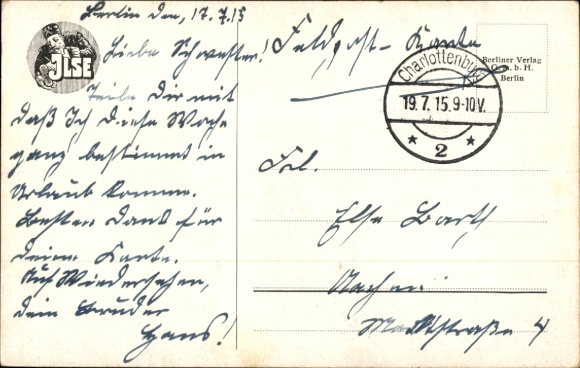 Berlin den, 17.7.15
Liebe Schwester!
Teile Dir mit
daß Ich diese Woche
ganz bestimmt in
Urlaub komme.
Besten Dank für
deine Karte.
Auf Wiedersehen,
dein Bruder
Hans!
JLSE
Feldpost-Karte
Berliner Verlag
G.m.b.H.
Berlin
Charlottenburg
19.7.15.9-10V.
* 2 *
Frl.
Else Barth
Aachen
Marktstraße 4